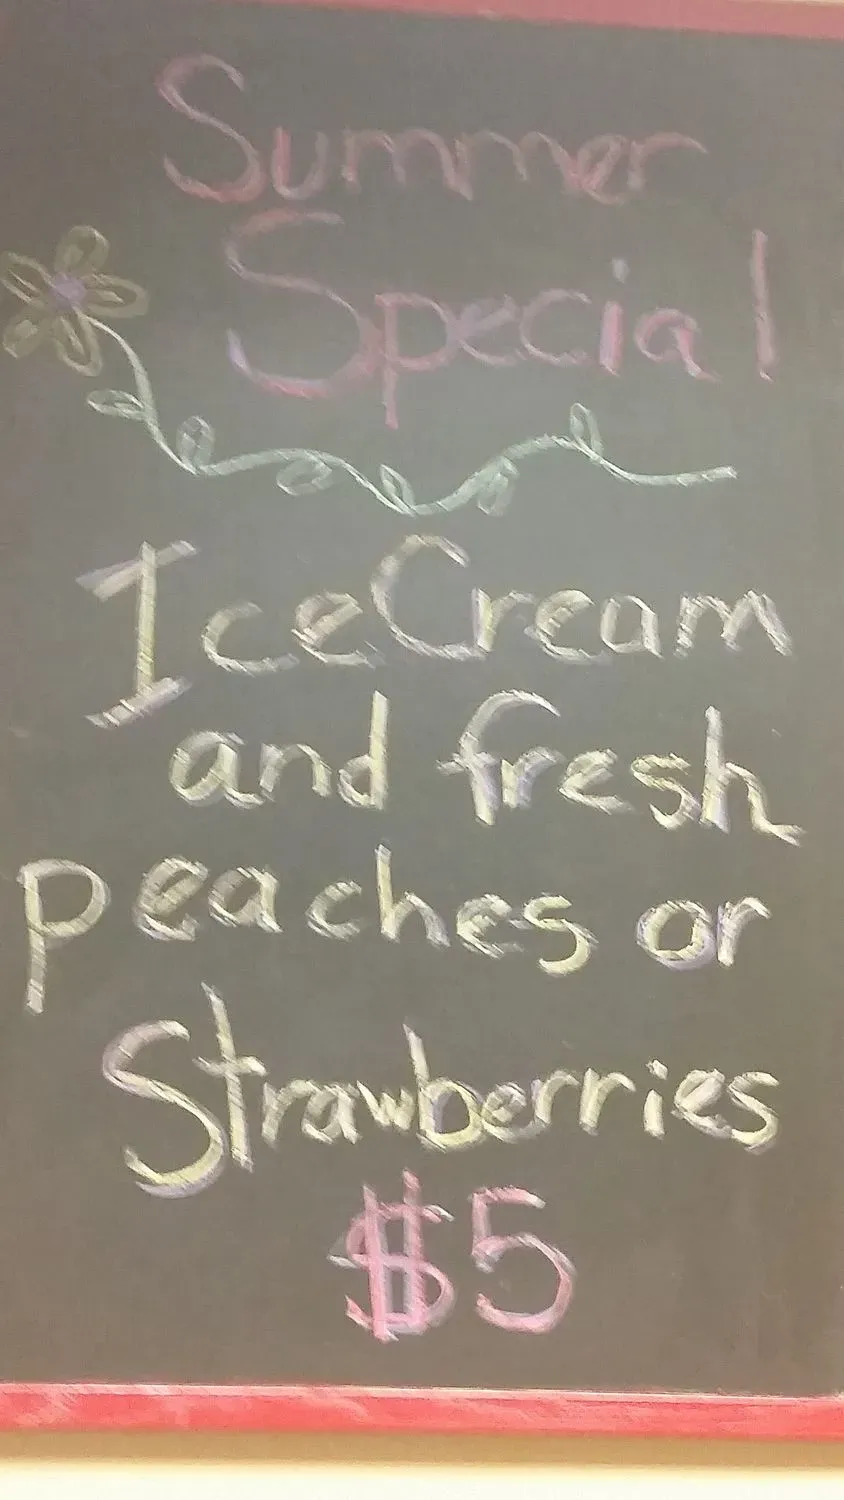 Summer
Special
Ice Cream
and fresh
peaches or
Strawberries
$5